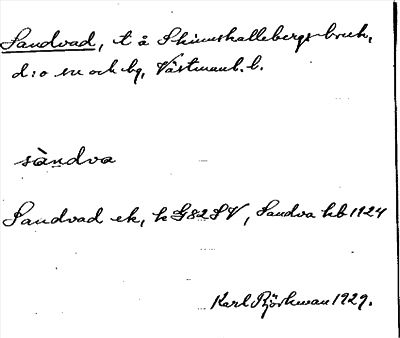 Sandvad, t å Skinnskattebergs bruk,
d:o sn och bg, Västmanl. l.
sàndva
Sandvad ek, k G82SV, Sandva hb 1924
Karl Björkman 1929.